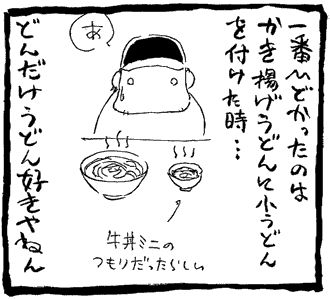 一番ひどかったのは
かき揚げうどんに小うどん
を付けた時…
あ
牛丼ミニの
つもりだったらしい
どんだけうどん好きやねん